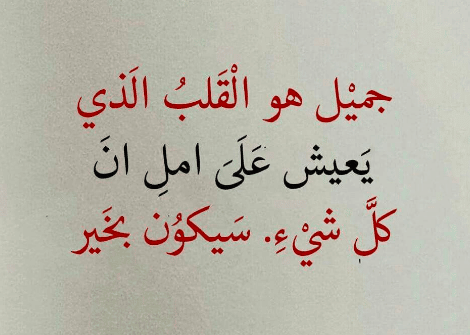 جميْل هو الْقَلبُ الَذي
يَعيش عَلَىَ املِ انَ
كلَّ شيْءِ. سَيكوُن بخَير